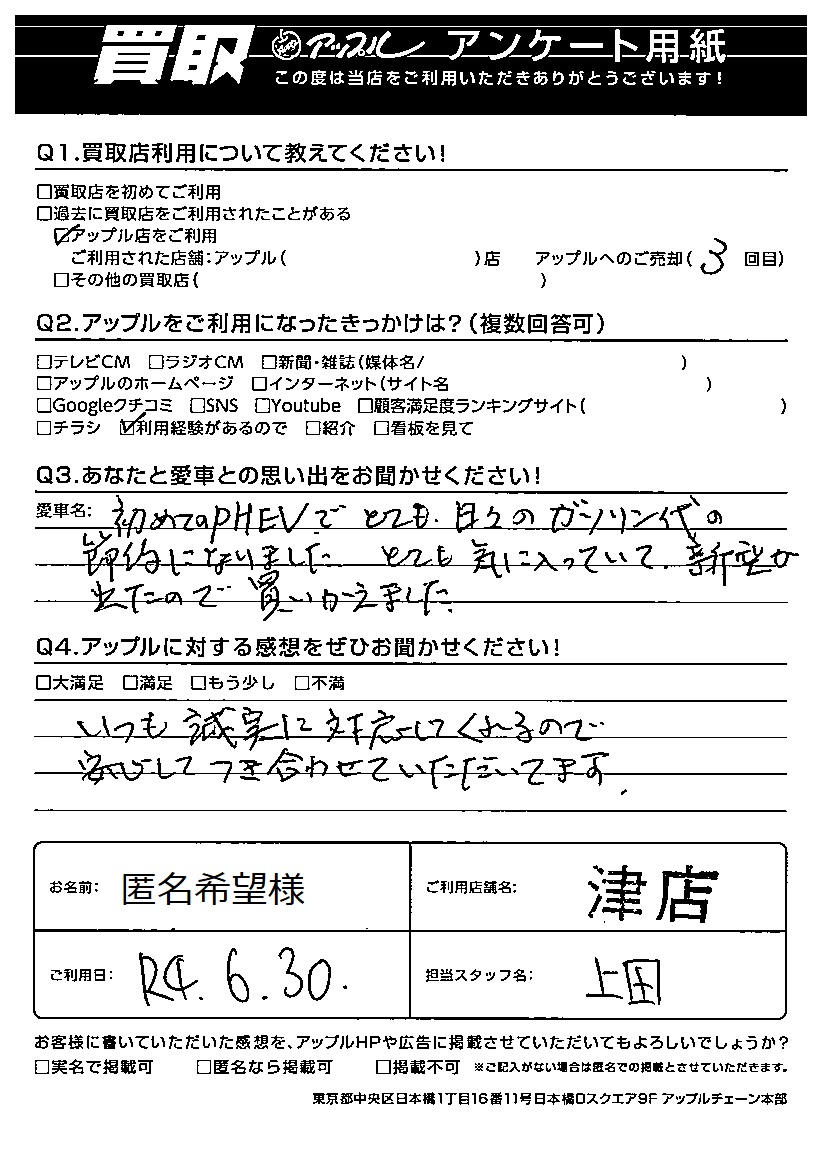 買取 アップル アンケート用紙
この度は当店をご利用いただきありがとうございます!
Q1.買取店利用について教えてください!
□買取店を初めてご利用
□過去に買取店をご利用されたことがある
☑アップル店をご利用
ご利用された店舗:アップル( )店 アップルへのご売却( 3 回目)
□その他の買取店( )
Q2.アップルをご利用になったきっかけは?(複数回答可)
□テレビCM □ラジオCM □新聞・雑誌(媒体名/ )
□アップルのホームページ □インターネット(サイト名 )
□Googleクチコミ □SNS □Youtube □顧客満足度ランキングサイト( )
□チラシ ☑利用経験があるので □紹介 □看板を見て
Q3.あなたと愛車との思い出をお聞かせください!
愛車名: 初めてのPHEVで とても、日々の ガソリン代の
節約になりました とても 気に入っていて、新型が
出たので 買いかえました
Q4.アップルに対する感想をぜひお聞かせください!
□大満足 □満足 □もう少し □不満
いつも 誠実に 対応してくれるので
安心して つき合わせていただいてます.
お名前: 匿名希望様 ご利用店舗名: 津店
ご利用日: R4. 6. 30. 担当スタッフ名: 上田
お客様に書いていただいた感想を、アップルHPや広告に掲載させていただいてもよろしいでしょうか?
□実名で掲載可 □匿名なら掲載可 □掲載不可 ※ご記入がない場合は匿名での掲載とさせていただきます。
東京都中央区日本橋1丁目16番11号日本橋Dスクエア9F アップルチェーン本部